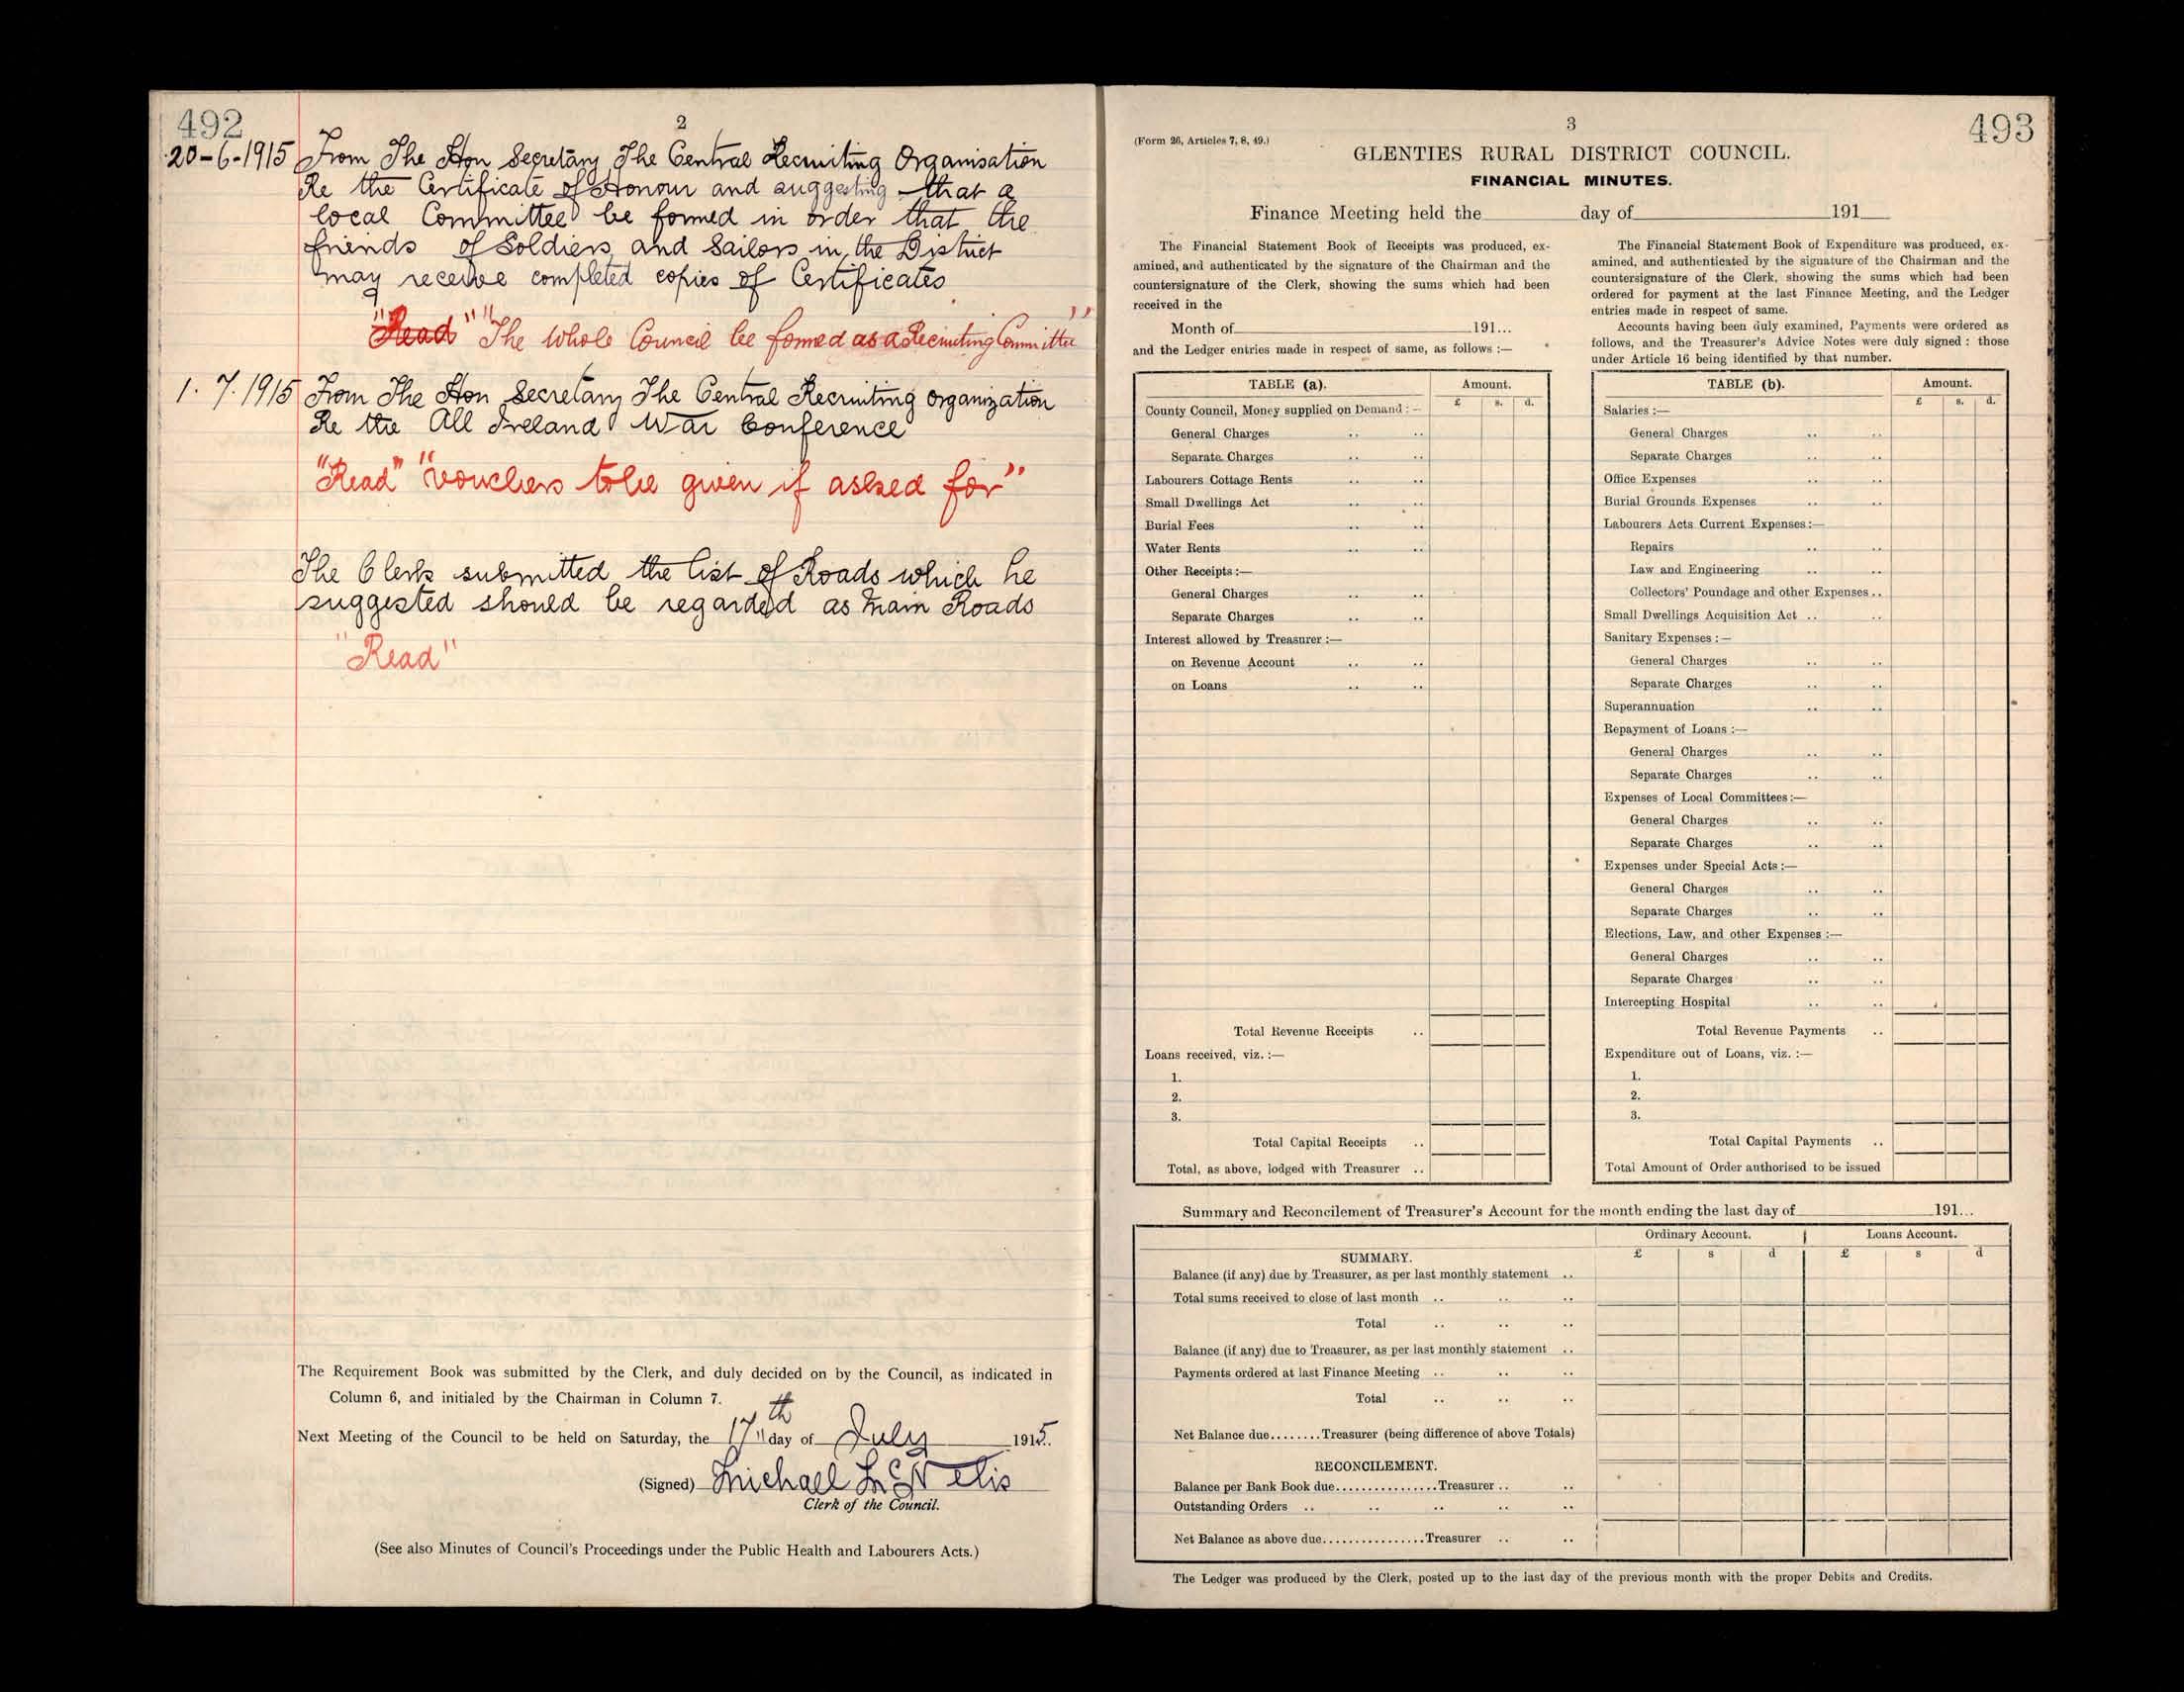 492
2
20-6-1915 From The Hon Secretary The Central Recruiting Organisation
Re the Certificate of Honour and suggesting that a
local Committee be formed in order that the
friends of Soldiers and Sailors in the District
may receive completed copies of Certificates
"Read" "The whole Council be formed as a Recruiting Committee"
1. 7. 1915 From The Hon Secretary The Central Recruiting Organization
Re the All Ireland War Conference
"Read" "Vouchers to be given if asked for"
The Clerk submitted the list of Roads which he
suggested should be regarded as Main Roads
"Read"
The Requirement Book was submitted by the Clerk, and duly decided on by the Council, as indicated in
Column 6, and initialed by the Chairman in Column 7.
Next Meeting of the Council to be held on Saturday, the 17th day of July 1915.
(Signed) Michael McNelis
Clerk of the Council.
(See also Minutes of Council's Proceedings under the Public Health and Labourers Acts.)
3
493
(Form 26, Articles 7, 8, 49.)
GLENTIES RURAL DISTRICT COUNCIL.
FINANCIAL MINUTES.
Finance Meeting held the day of 191
The Financial Statement Book of Receipts was produced, ex-
amined, and authenticated by the signature of the Chairman and the
countersignature of the Clerk, showing the sums which had been
received in the
Month of 191...
and the Ledger entries made in respect of same, as follows :—
TABLE (a). Amount.
£ s. d.
County Council, Money supplied on Demand :—
General Charges .. ..
Separate Charges .. ..
Labourers Cottage Rents .. ..
Small Dwellings Act .. ..
Burial Fees .. ..
Water Rents .. ..
Other Receipts :—
General Charges .. ..
Separate Charges .. ..
Interest allowed by Treasurer :—
on Revenue Account .. ..
on Loans .. ..
Total Revenue Receipts ..
Loans received, viz. :—
1.
2.
3.
Total Capital Receipts ..
Total, as above, lodged with Treasurer ..
The Financial Statement Book of Expenditure was produced, ex-
amined, and authenticated by the signature of the Chairman and the
countersignature of the Clerk, showing the sums which had been
ordered for payment at the last Finance Meeting, and the Ledger
entries made in respect of same.
Accounts having been duly examined, Payments were ordered as
follows, and the Treasurer's Advice Notes were duly signed : those
under Article 16 being identified by that number.
TABLE (b). Amount.
£ s. d.
Salaries :—
General Charges .. ..
Separate Charges .. ..
Office Expenses .. ..
Burial Grounds Expenses .. ..
Labourers Acts Current Expenses :—
Repairs .. ..
Law and Engineering .. ..
Collectors' Poundage and other Expenses ..
Small Dwellings Acquisition Act .. ..
Sanitary Expenses :—
General Charges .. ..
Separate Charges .. ..
Superannuation .. ..
Repayment of Loans :—
General Charges .. ..
Separate Charges .. ..
Expenses of Local Committees :—
General Charges .. ..
Separate Charges .. ..
Expenses under Special Acts :—
General Charges .. ..
Separate Charges .. ..
Elections, Law, and other Expenses :—
General Charges .. ..
Separate Charges .. ..
Intercepting Hospital .. ..
Total Revenue Payments ..
Expenditure out of Loans, viz. :—
1.
2.
3.
Total Capital Payments ..
Total Amount of Order authorised to be issued
Summary and Reconcilement of Treasurer's Account for the month ending the last day of 191...
Ordinary Account. Loans Account.
SUMMARY. £ s d £ s d
Balance (if any) due by Treasurer, as per last monthly statement ..
Total sums received to close of last month .. .. ..
Total .. .. ..
Balance (if any) due to Treasurer, as per last monthly statement ..
Payments ordered at last Finance Meeting .. .. ..
Total .. .. ..
Net Balance due........Treasurer (being difference of above Totals)
RECONCILEMENT.
Balance per Bank Book due................Treasurer .. ..
Outstanding Orders .. .. .. .. ..
Net Balance as above due................Treasurer .. ..
The Ledger was produced by the Clerk, posted up to the last day of the previous month with the proper Debits and Credits.